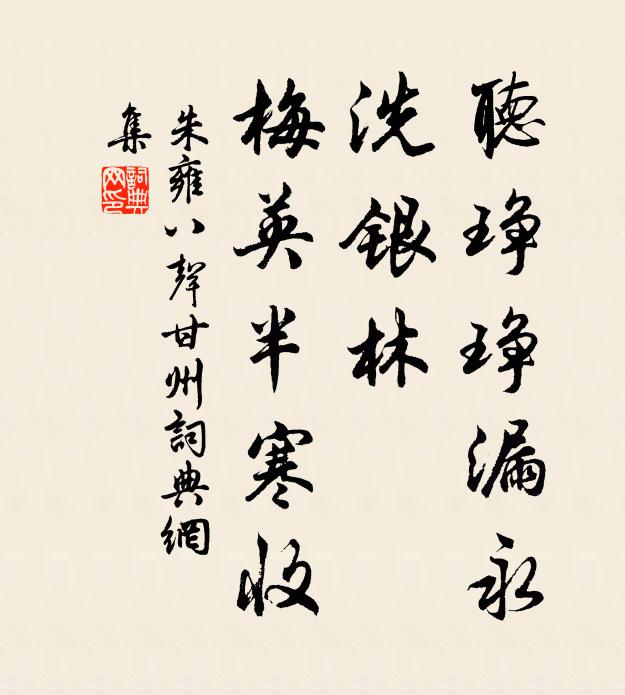 聽琤琤漏永
洗銀林
梅英半寒收
朱雍八聲甘州詞典網
集
詞典网印